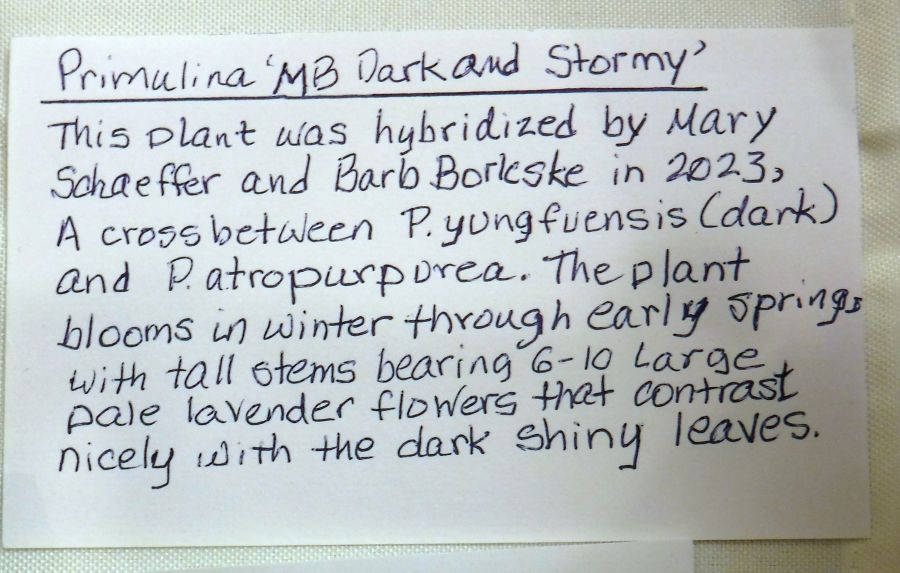 Primulina 'MB Dark and Stormy'
This plant was hybridized by Mary
Schaeffer and Barb Borleske in 2023,
A cross between P. yungfuensis (dark)
and P. atropurpurea. The plant
blooms in winter through early springs
with tall stems bearing 6-10 Large
pale lavender flowers that contrast
nicely with the dark shiny leaves.